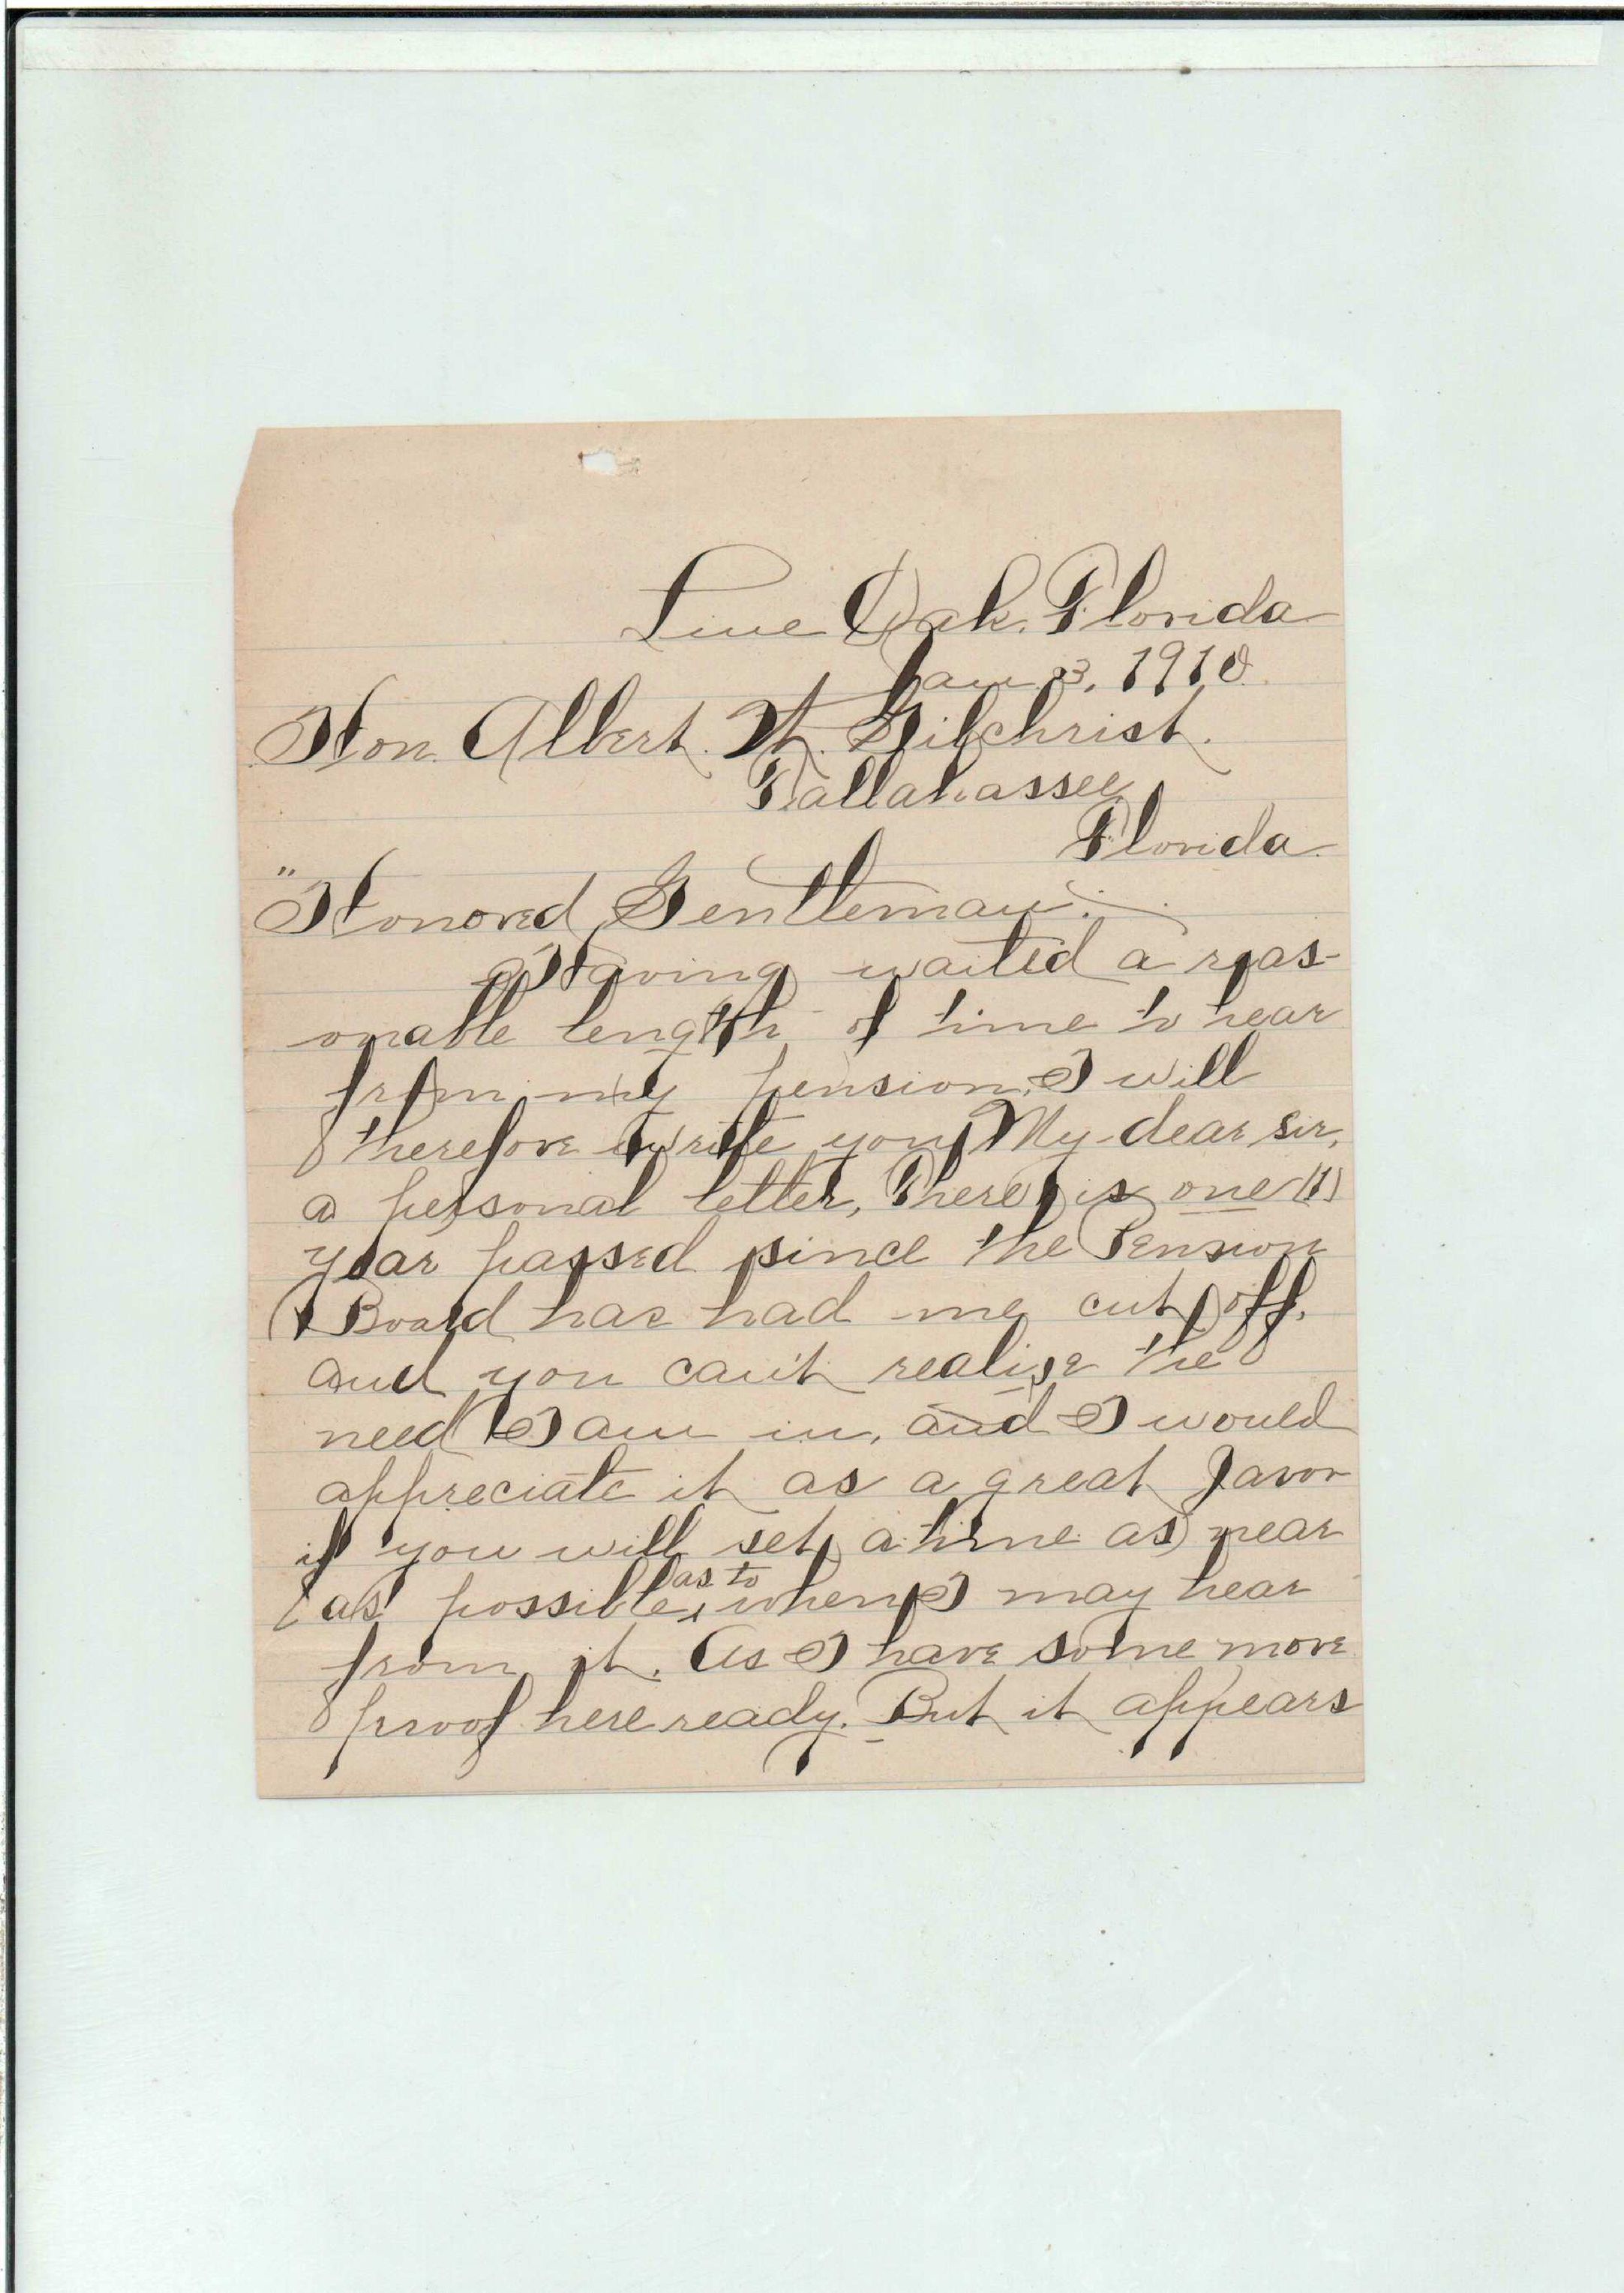 Live Oak. Florida
Jan 3, 1910.
Hon. Albert. W. Gilchrist.
Tallahassee
Florida.
"Honored Gentleman:
Having waited a reas-
onable length of time to hear
from my pension, I will
therefore write you, My dear sir,
a personal letter, There is one (1)
year passed since the Pension
Board has had me cut off.
and you can't realize the
need I am in, and I would
appreciate it as a great favor
if you will set a time as near
as possible, as to when I may hear
from it. As I have some more
proof here ready. But it appears